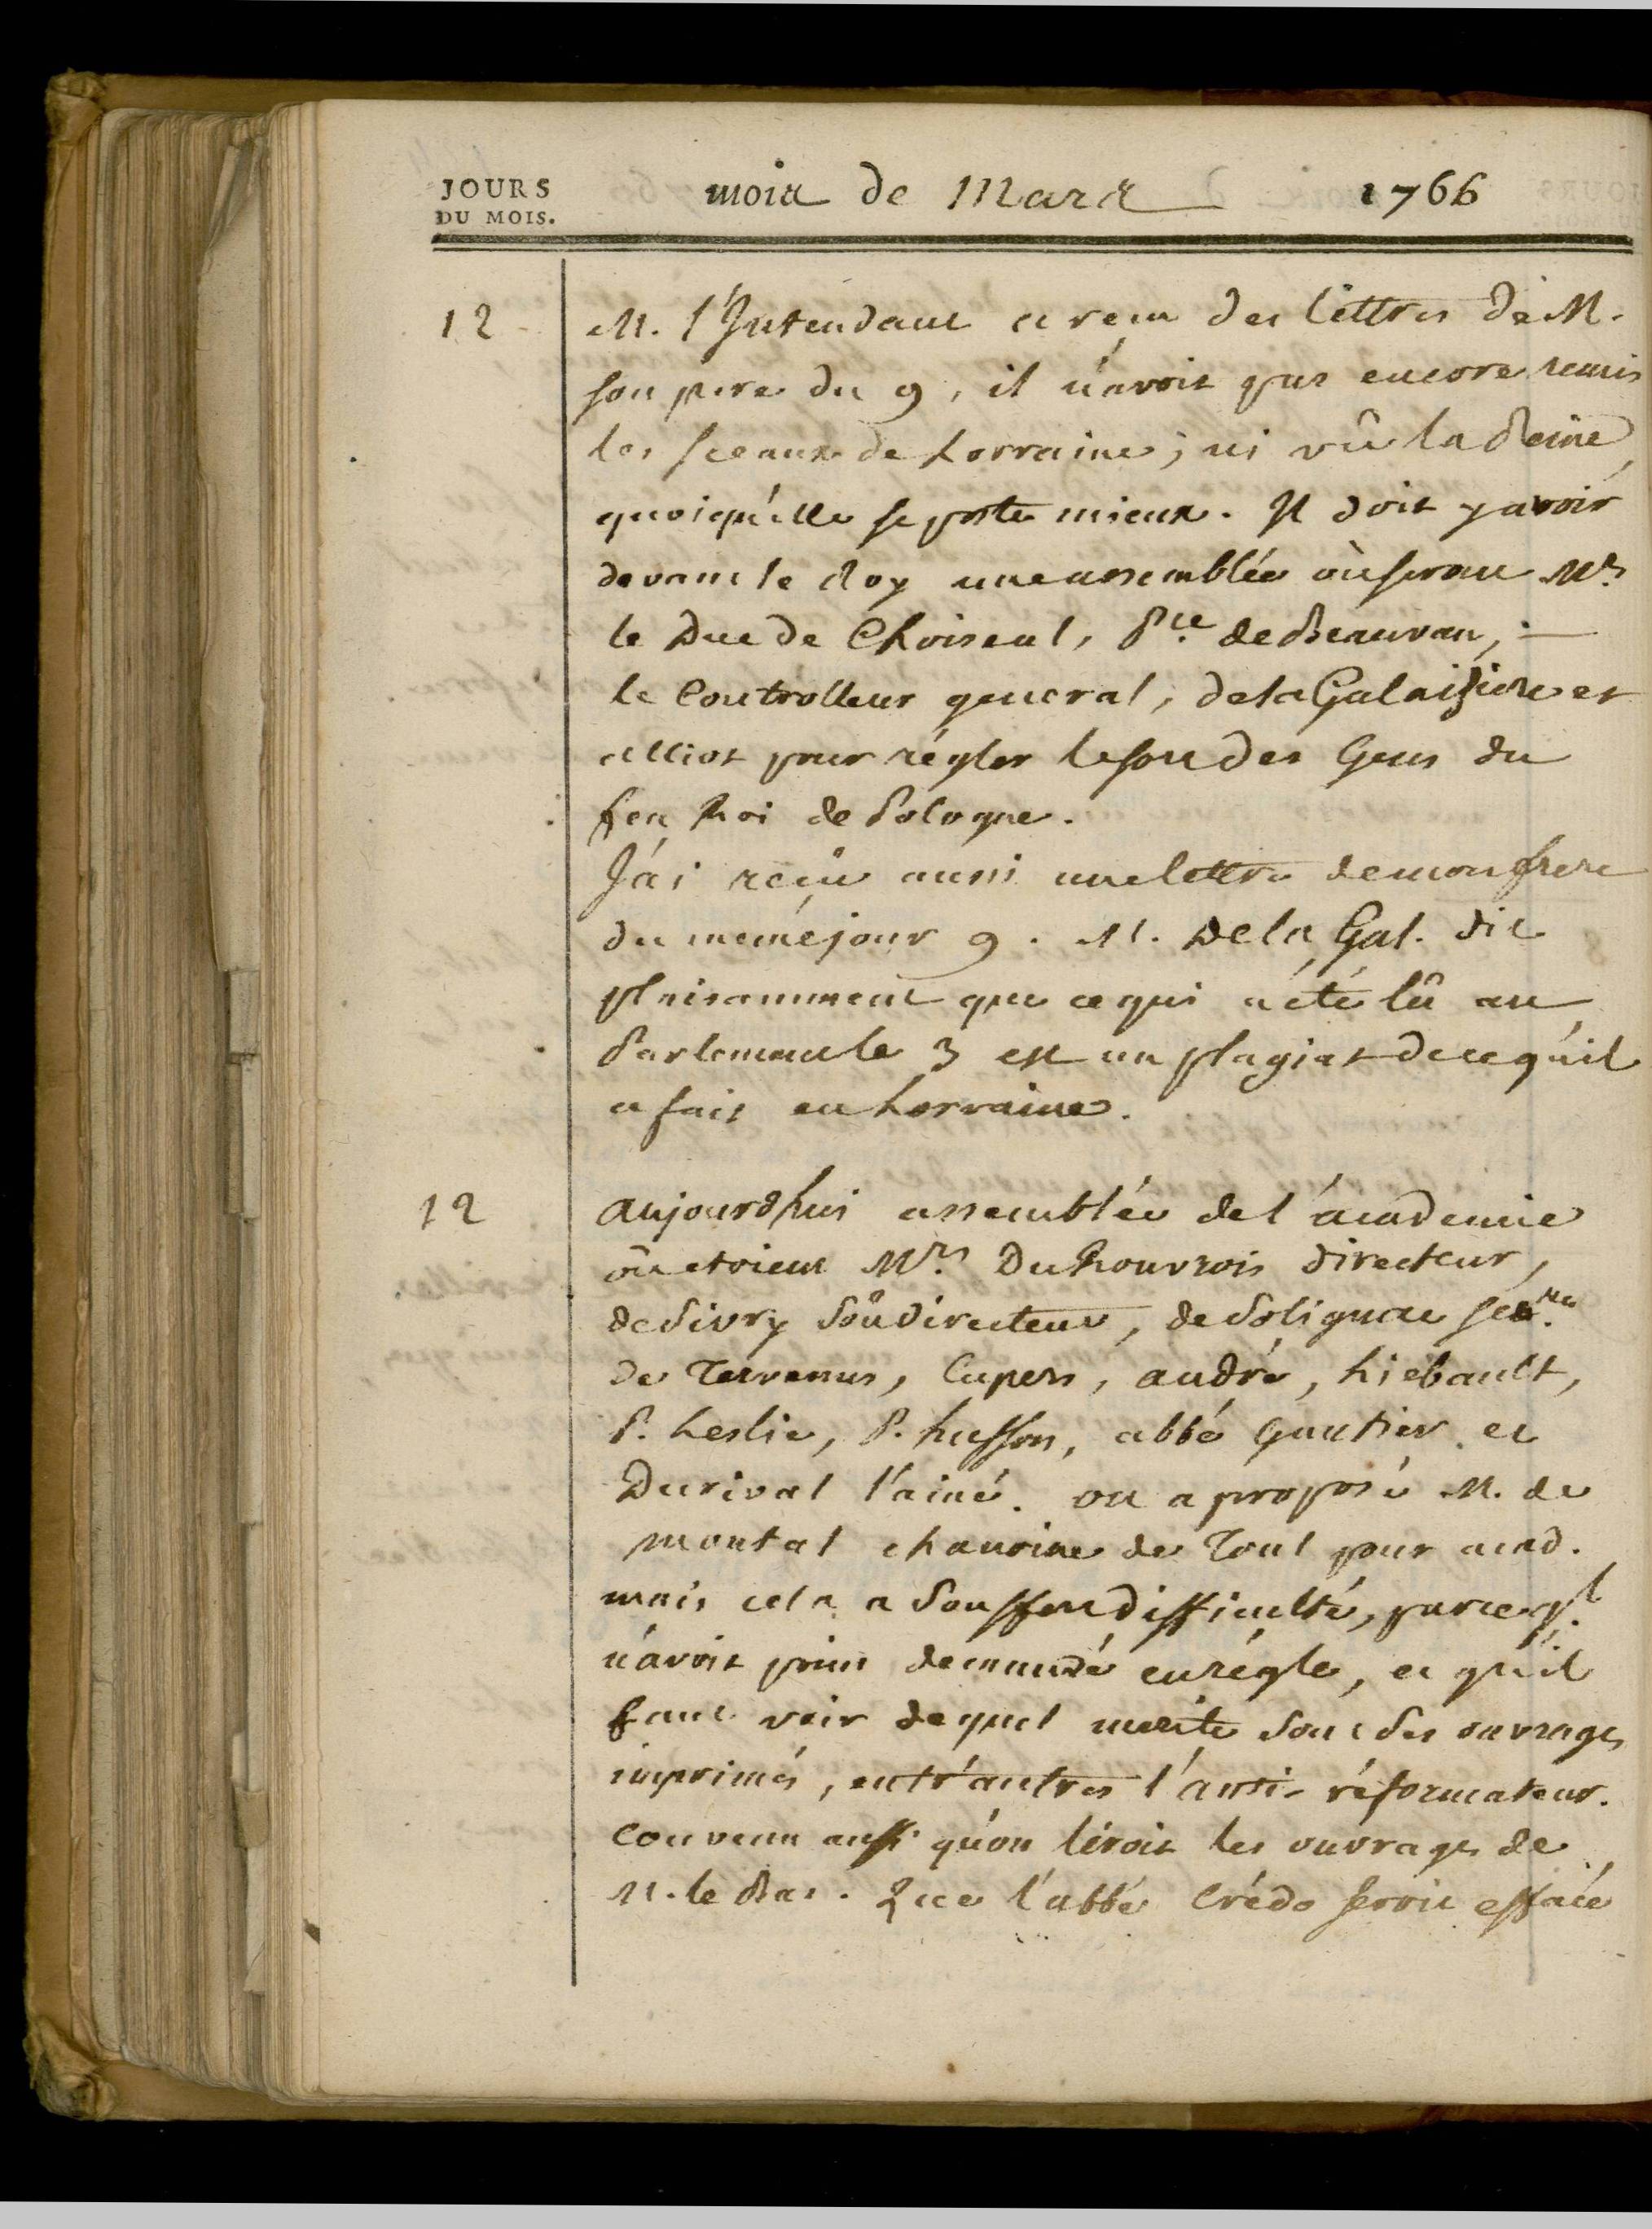 JOURS
DU MOIS.
mois de Mars 1766
12 M. l'Intendant a reçu des lettres de M.
son pere du 9, il n'avoit pas encore remis
les sceaux de Lorraine, ni vû la Reine,
quoiqu'elle se porte mieux. Il doit y avoir
devant le Roy une assemblée où seront Mrs
le Duc de Choiseul, Pce de Beauvau,
le Controlleur general, de la Galaiziere et
alliot pour régler le sort des Gens du
feu Roi de Pologne.
J'ai reçu aussi une lettre de mon frere
du meme jour 9. M. De la Gal. dit
plaisamment que ce qui a été lû au
Parlement le 3 est un plagiat de ce qu'il
a fait en Lorraine.
12 aujourdhui assemblée de l'academie
où etoient Mrs. DuRouvrois directeur,
de Sivry Soûdirecteur, de Solignac
de Tervenus, Cupers, andré, Liébault,
P. Leslie, P. husson, abbé Gautier et
Durival l'ainé. on a proposé M. de
montal chanoine de Toul pour acad.
mais cela a Souffert difficulté, parce ql.
n'avoit point demandé en régle, et qu'il
faut voir de quel merite sont Ses ouvrages
imprimés, entr'autres l'anti-réformateur.
Convenu aussi qu'on liroit les ouvrages de
M. le Bas. Que l'abbé Crédo seroit effacé